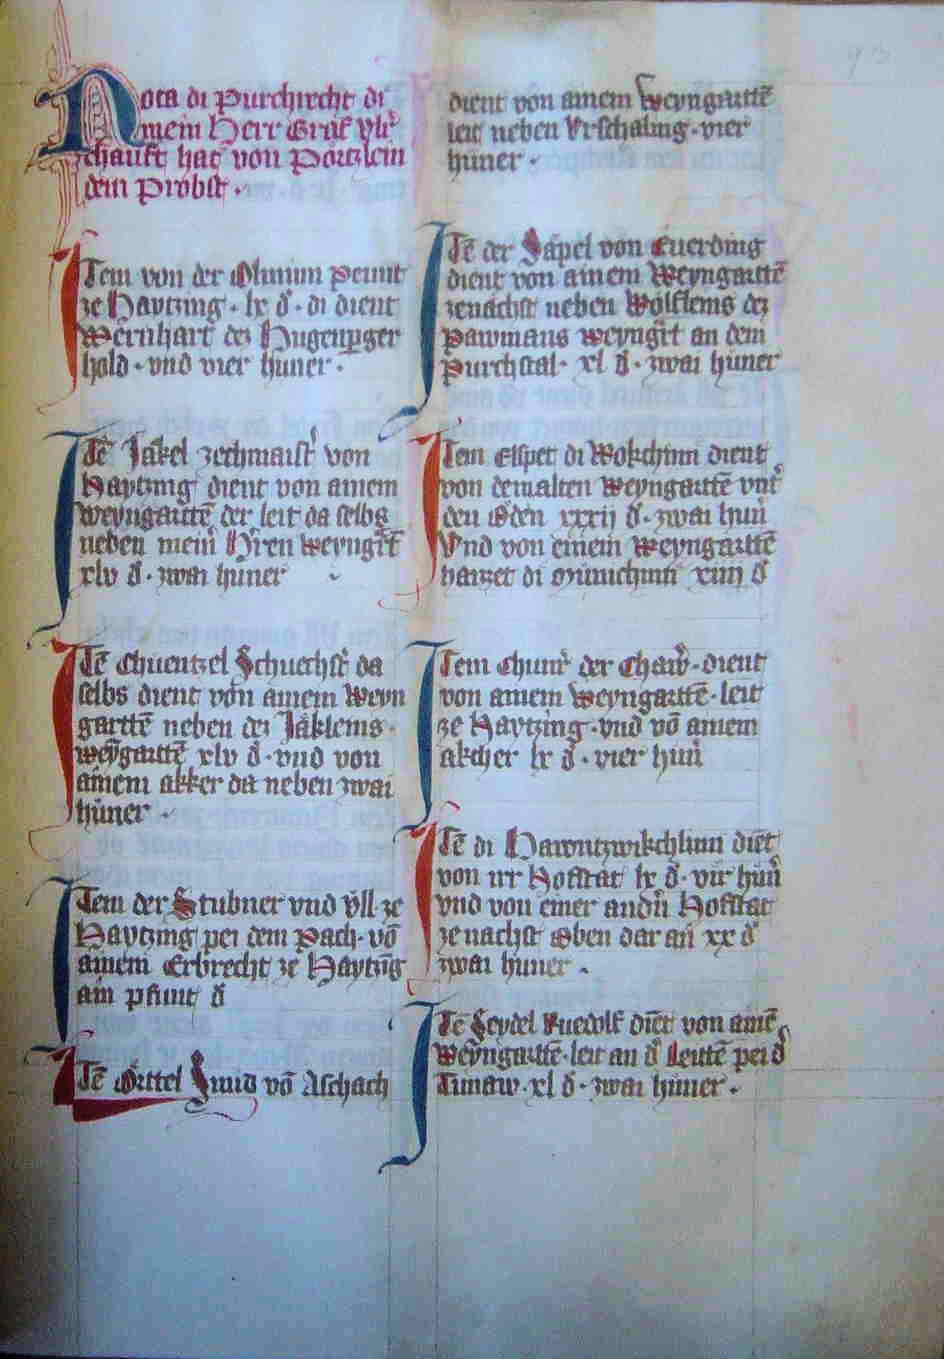 Nota di Purchrecht di
mein Herr Graf Vlr̄
schauft hat von Pörtzlein
dem Probst ·
Item von der Öliniun peunt
ze Haytzing · lx d̄ · di dient
Wernhart dez Hugenperger
hold · vnd vier hüner ·
Itē Jäkel zechmaistr̄ von
Haytzing dient von ainem
weyngarttē der leit da selbs
neben meinr̄ Hr̄ren weyngr̄tē
xlv d̄ · zwai hüner
Itē Chuentzel Schuechstr̄ da
selbs dient von ainem weyn
garttē neben dez Jäkleins ·
weȳgarttē xlv d̄ · vnd von
ainem akker da neben zwai
hüner ·
Item der Stubner vnd Vll ze
Haytzing pei dem Pach · vō
ainem Erbrecht ze Haytzīg
ain pfunt d̄
Itē Örttel Smid vō Aschach
dient von ainem Weyngarttē
leit neben Vrschaling · vier
hüner ·
Itē der Säpel von Euerding
dient von ainem Weyngarttē
zenächst neben Wölfleins dez
pawmans weyngr̄t an dem
Purchstal · xl d̄ · zwai hüner
Item Elspet di Wokchinn dient
von demalten weyngarttē vntr̄
den Öden xxxij d̄ · zwai hun̄
Vnd von einem Weyngarttē
haizzet di Münichinn xiiij d̄
Item Chunr̄ der Chaw̄ · dient
von ainem weyngarttē · leit
ze Haytzing · vnd vō ainem
akcher lx d̄ · vier hun̄
Itē di Hawntzwikchlinn diēt
von irr Hofstat lx d̄ · vir hün̄
vnd von einer andn̄ Hofstat
ze nachst öben dar an xx d̄
zwai hüner ·
Itē Seydel Ruedolf diēt von ainē
Weyngarttē · leit an d̄ Leutē pei d̄
Tunaw · xl d̄ · zwai hüner ·